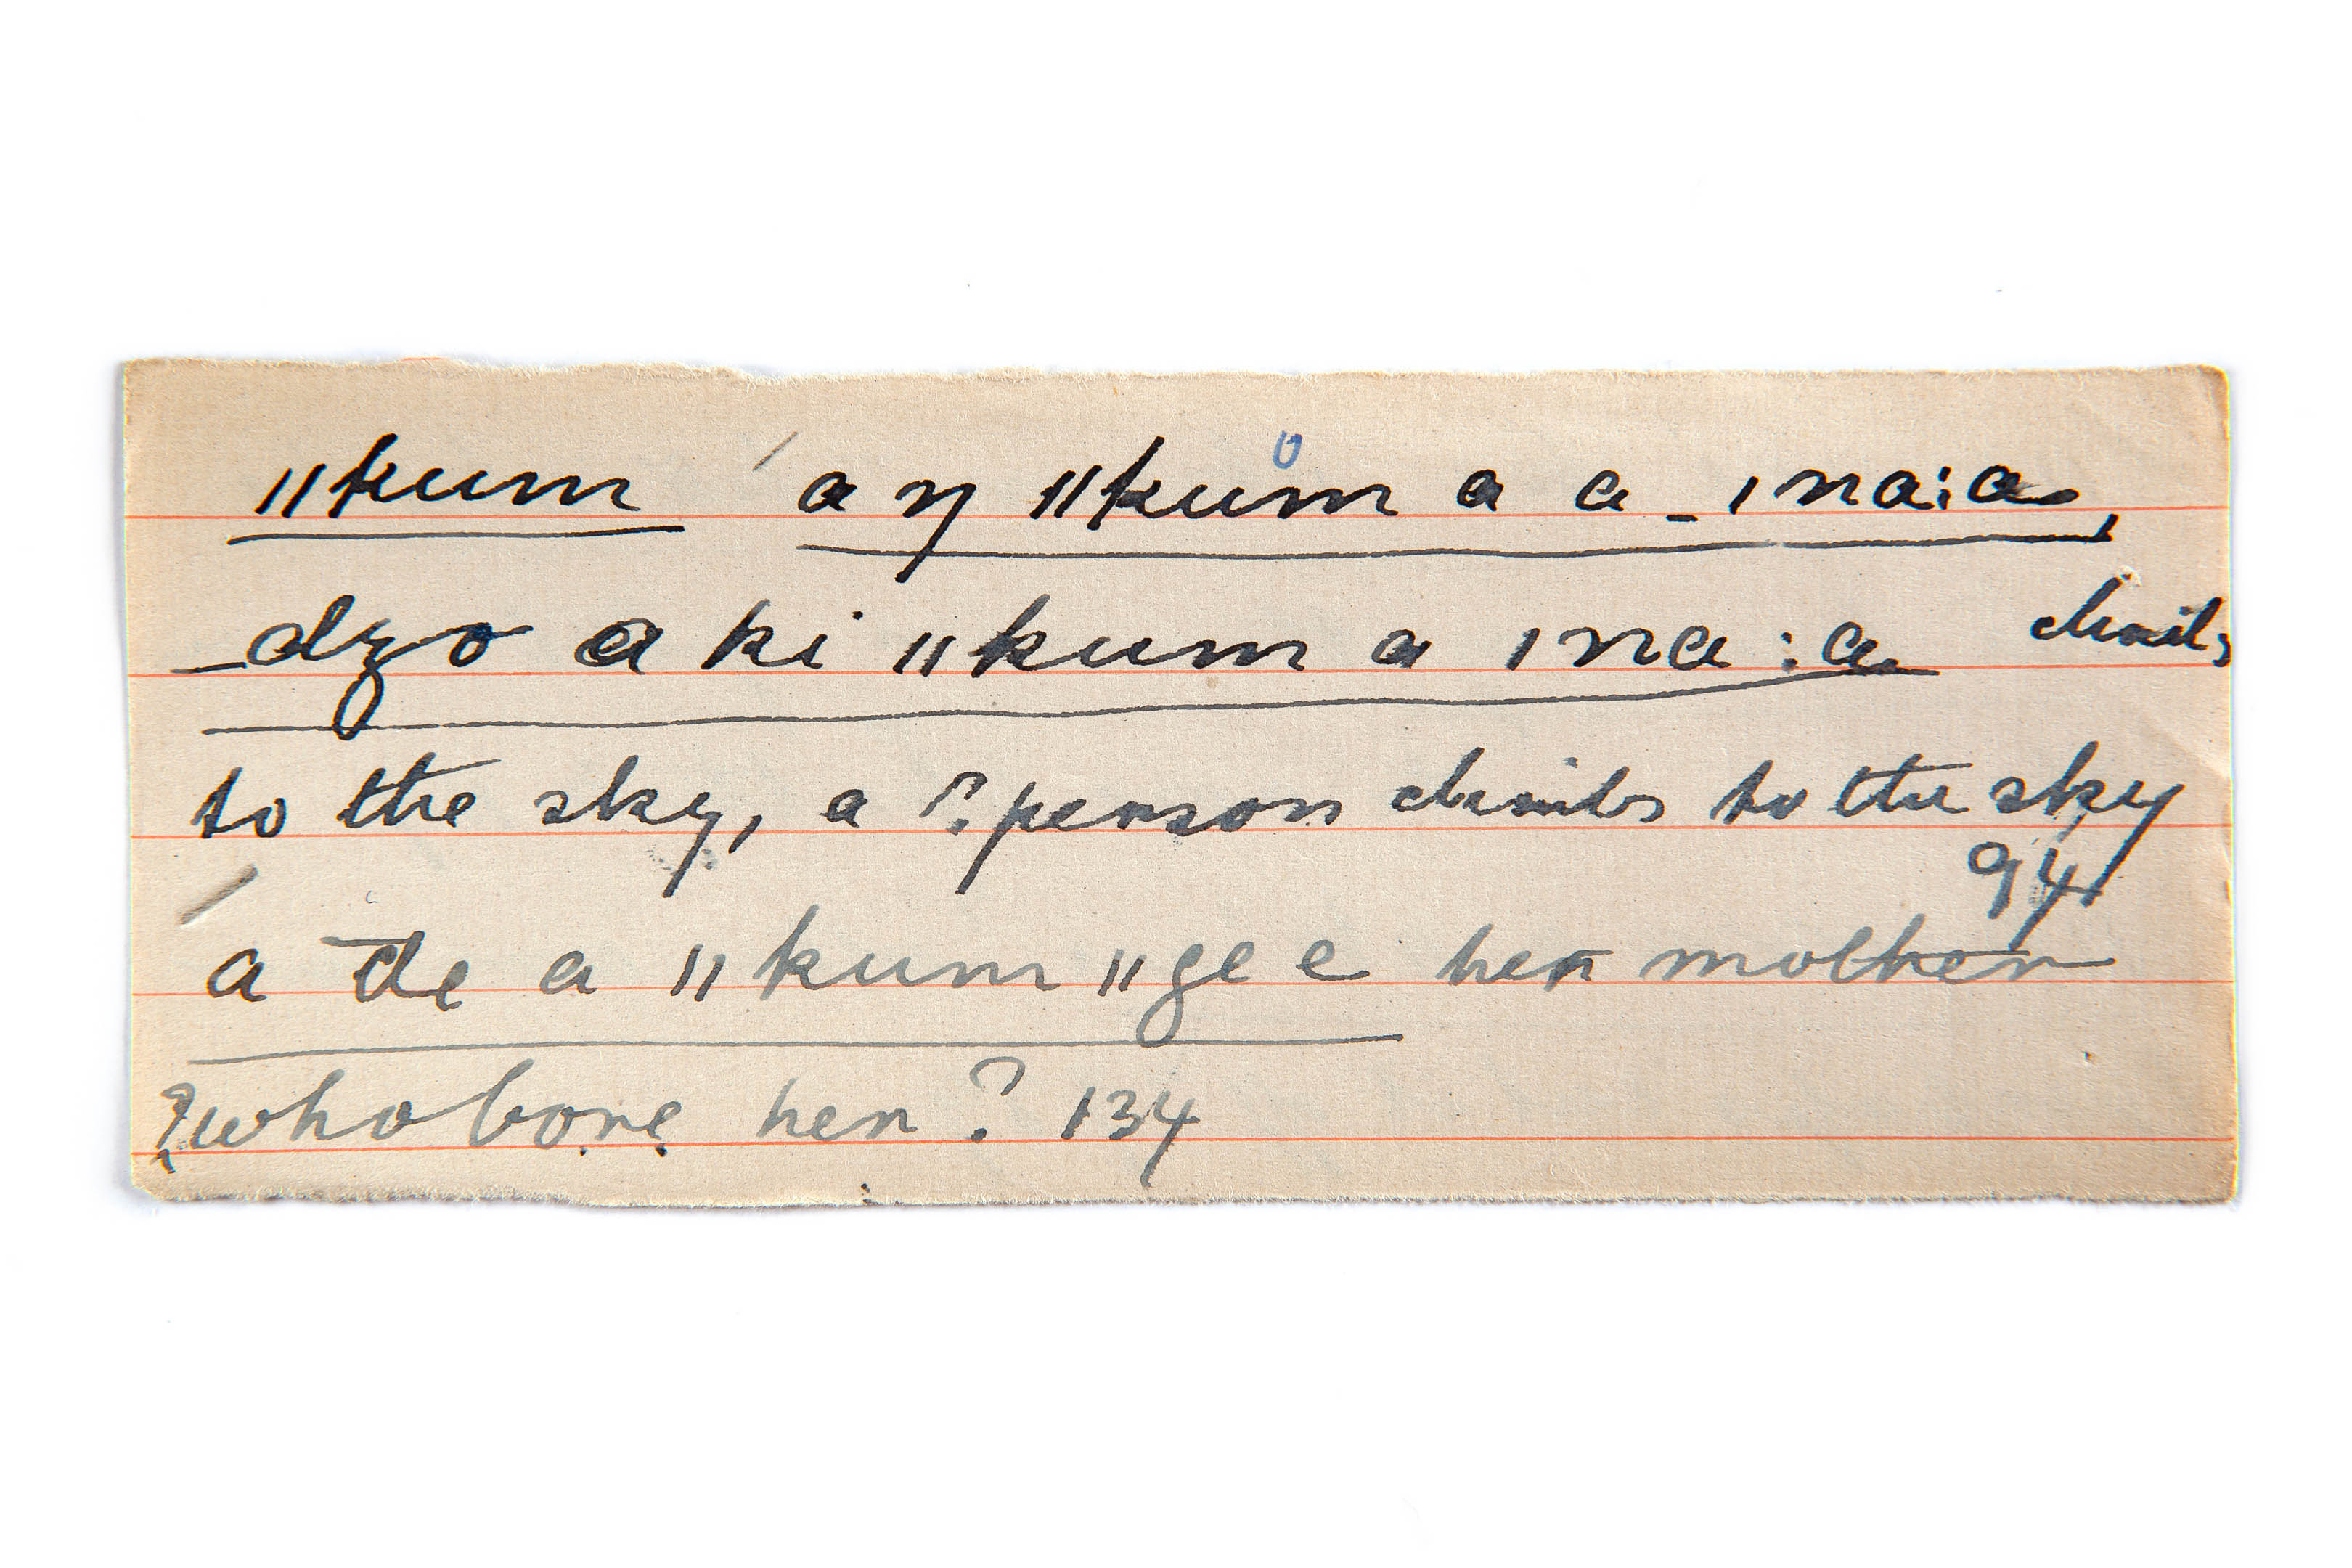 ǁkum aŋ ǁkum a a _ ǀna:a,
_dzo a ki ǁkum a ǀna:a climbs
to the sky, a ? person climbs to the sky
94
a d̄e a ǁkum ǁgee her mother
?who bore her? 134